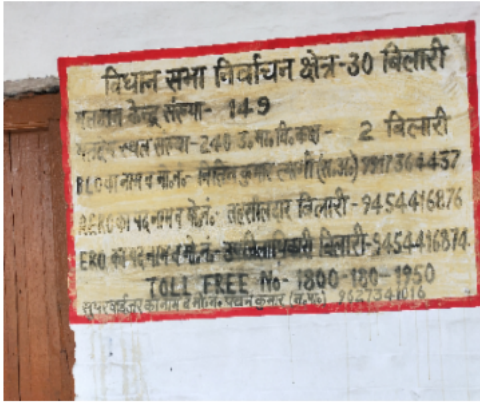 विधान सभा निर्वाचन क्षेत्र-30 बिलारी
मतदान केन्द्र संख्या- 149
मतदान स्थल संख्या-240 उ.प्रा.वि.कक्ष- 2 बिलारी
BLO का नाम व मो.नं.- कुमार (स.अ.)
AERO का पद नाम व मो.नं.- तहसीलदार बिलारी-9454416876
ERO का पद नाम व मो.नं- उपजिलाधिकारी बिलारी-9454416874
TOLL FREE No- 1800-180-1950
सुपरवाईजर का नाम व मो.नं. पवन कुमार (स.अ.) 9627341016